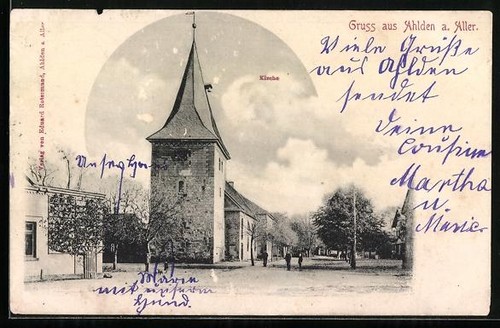 Gruss aus Ahlden a. Aller.
Verlag von Eduard Rotermund, Ahlden a. Aller
Kirche
Viele Grüße
aus Ahlden
sendet
Deine
Cousine
Martha
u.
Marie
Unser
Marie
mit unserm
Hund.